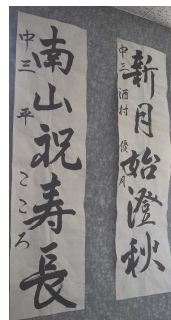 新月始澄秋
中三 酒村 優月
南山祝寿長
中三 平 こころ